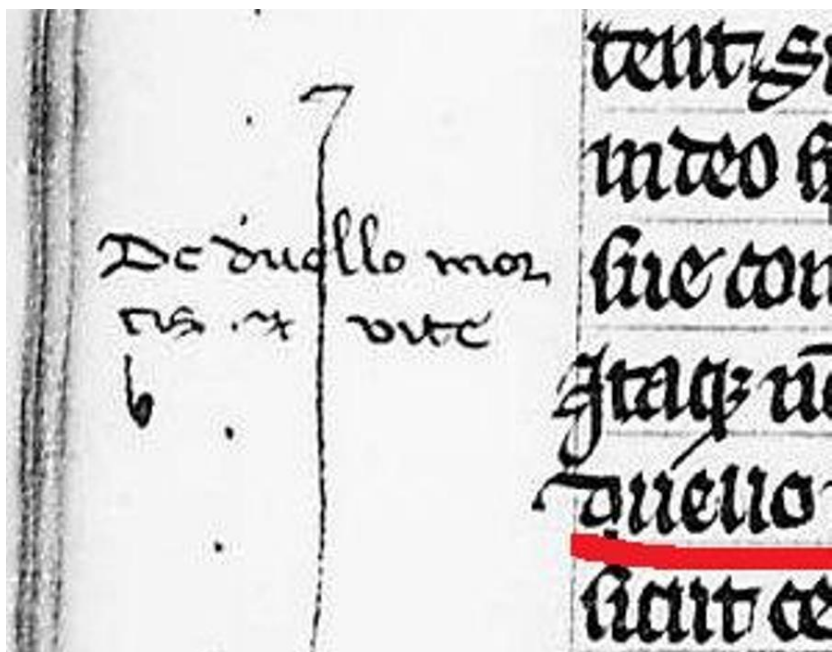 De duello mor
tis et vite
b
tent Si
in deo h
sue con
Itaq
duello
sicut ce